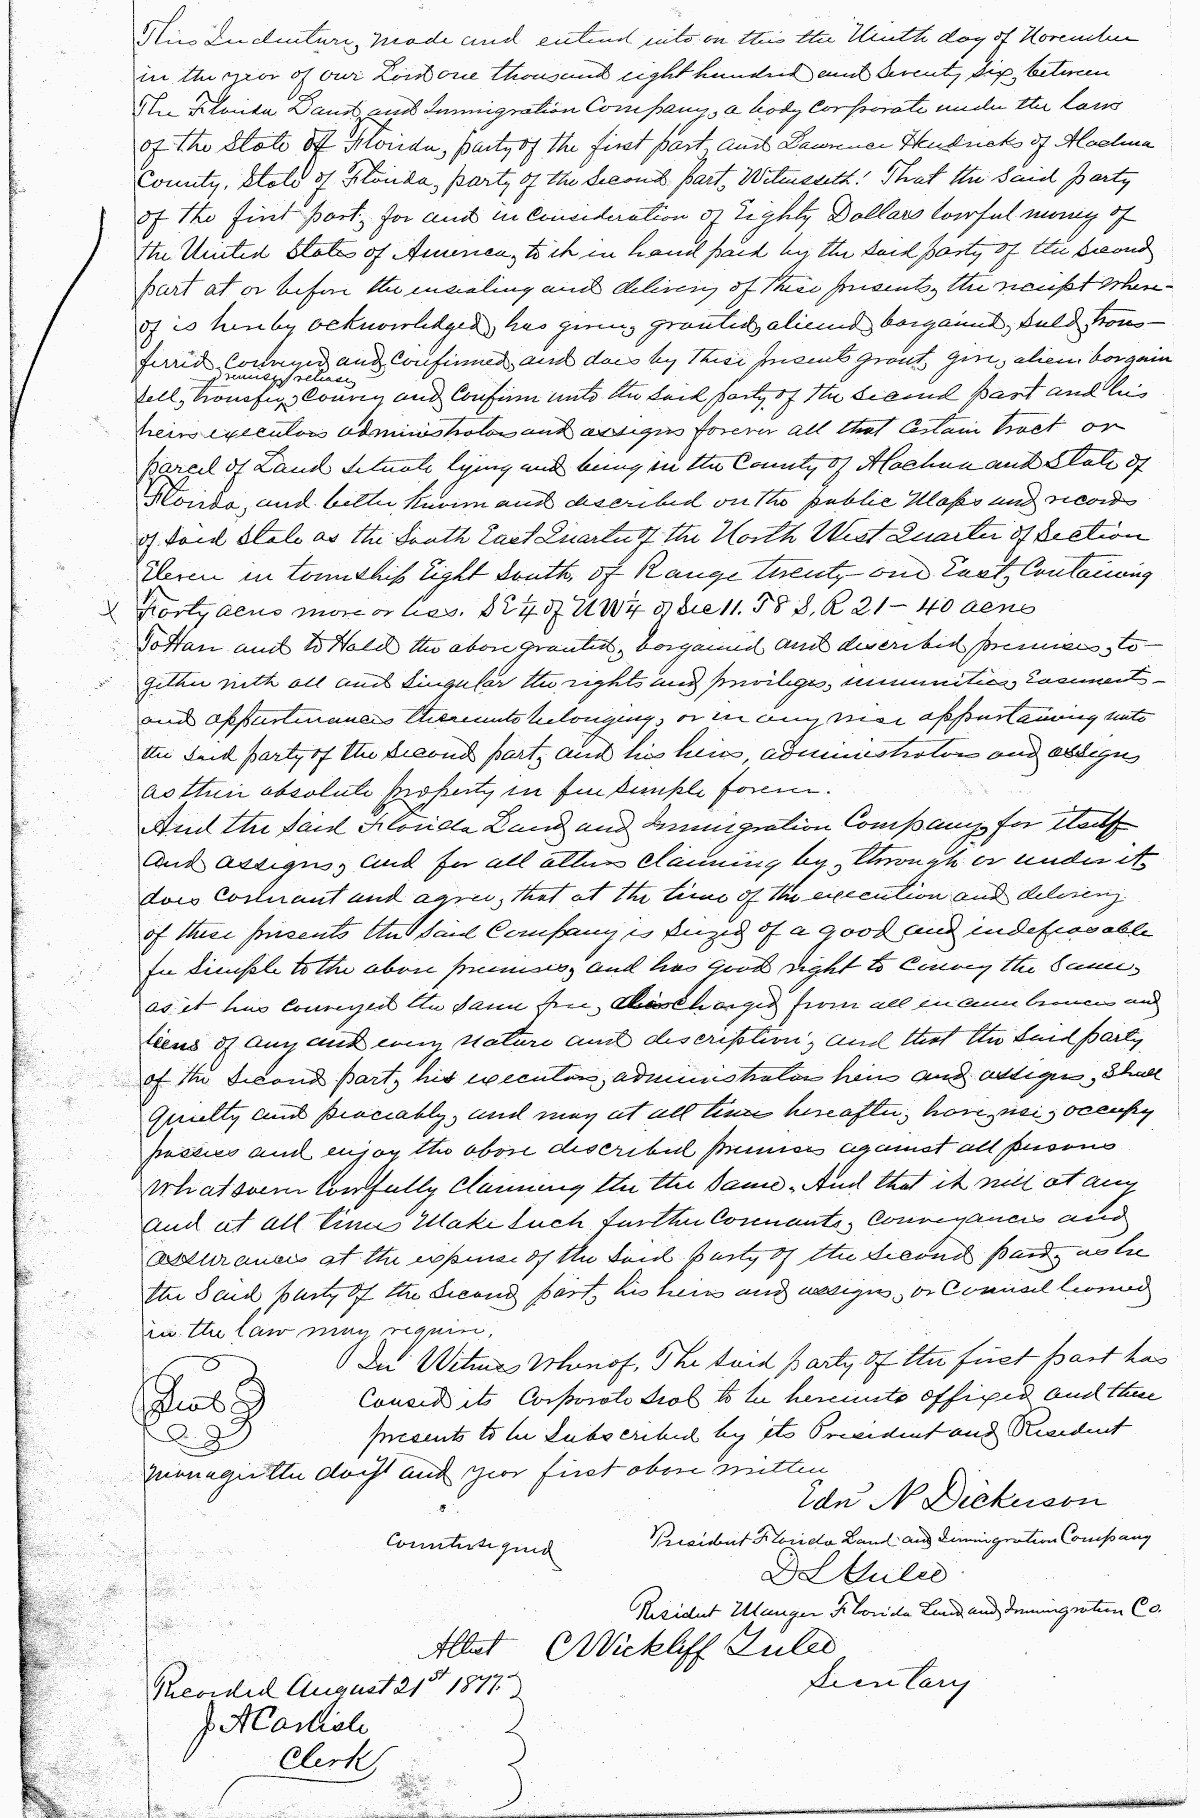 This Indenture, made and entered into on this the Ninth day of November
in the year of our Lord one thousand eight hundred and Seventy Six, between
The Florida Land and Immigration Company, a body Corporate under the laws
of the State of Florida, party of the first part, and Lawrence Hendricks of Alachua
County, State of Florida, party of the Second part, Witnesseth: That the Said party
of the first part, for and in Consideration of Eighty Dollars lawful money of
the United States of America, to it in hand paid by the Said party of the Second
part at or before the ensealing and delivery of these presents, the receipt where-
of is hereby acknowledged, has given, granted, aliened, bargained, Sold, trans-
ferred, Conveyed and Confirmed, and does by these presents grant, give, alien, bargain
remise, release
Sell, transfer, Convey and Confirm unto the Said party of the Second part and his
heirs executors administrators and assigns forever all that Certain tract or
parcel of Land Situate lying and being in the County of Alachua and State of
Florida, and better known and described on the public Maps and records
of Said State as the South East Quarter of the North West Quarter of Section
Eleven in township Eight South, of Range twenty-one East, Containing
X Forty acres more or less. SE¼ of NW¼ of Sec 11. T8 S. R 21 - 40 acres
To Have and to Hold the above granted, bargained and described premises, to-
gether with all and Singular the rights and privileges, immunities, Easements-
and appurtenances thereunto belonging, or in any wise appertaining unto
the Said party of the Second part, and his heirs, administrators and assigns
as their absolute property in fee Simple forever.
And the Said Florida Land and Immigration Company, for itself
and assigns, and for all others Claiming by, through or under it,
does Covenant and agree, that at the time of the execution and delivery
of these presents the Said Company is Seized of a good and indefeasable
fee Simple to the above premises, and has good right to Convey the Same,
as it has conveyed the Same free, discharged from all encumbrances and
liens of any and every nature and description; and that the Said party
of the Second part, his executors, administrators heirs and assigns, Shall
quietly and peaceably, and may at all times hereafter, have, use, occupy
possess and enjoy the above described premises against all persons
whatsoever lawfully Claiming the the Same. And that it will at any
and at all times Make Such further Covenants, Conveyances and
assurances at the expense of the Said party of the Second part, as he
the Said party of the Second part, his heirs and assigns, or Counsel learned
in the law may require.
In Witness Whereof, The Said party of the first part has
Seal
Caused its Corporate Seal to be hereunto affixed and these
presents to be Subscribed by its President and Resident
manager the day and year first above written
Edn N Dickerson
Countersigned
President Florida Land and Immigration Company
D L Yulee
Resident Manger Florida Land and Immigration Co.
Attest C Wickliff Yulee
Secretary
Recorded August 21st 1877.
J A Carlisle
Clerk